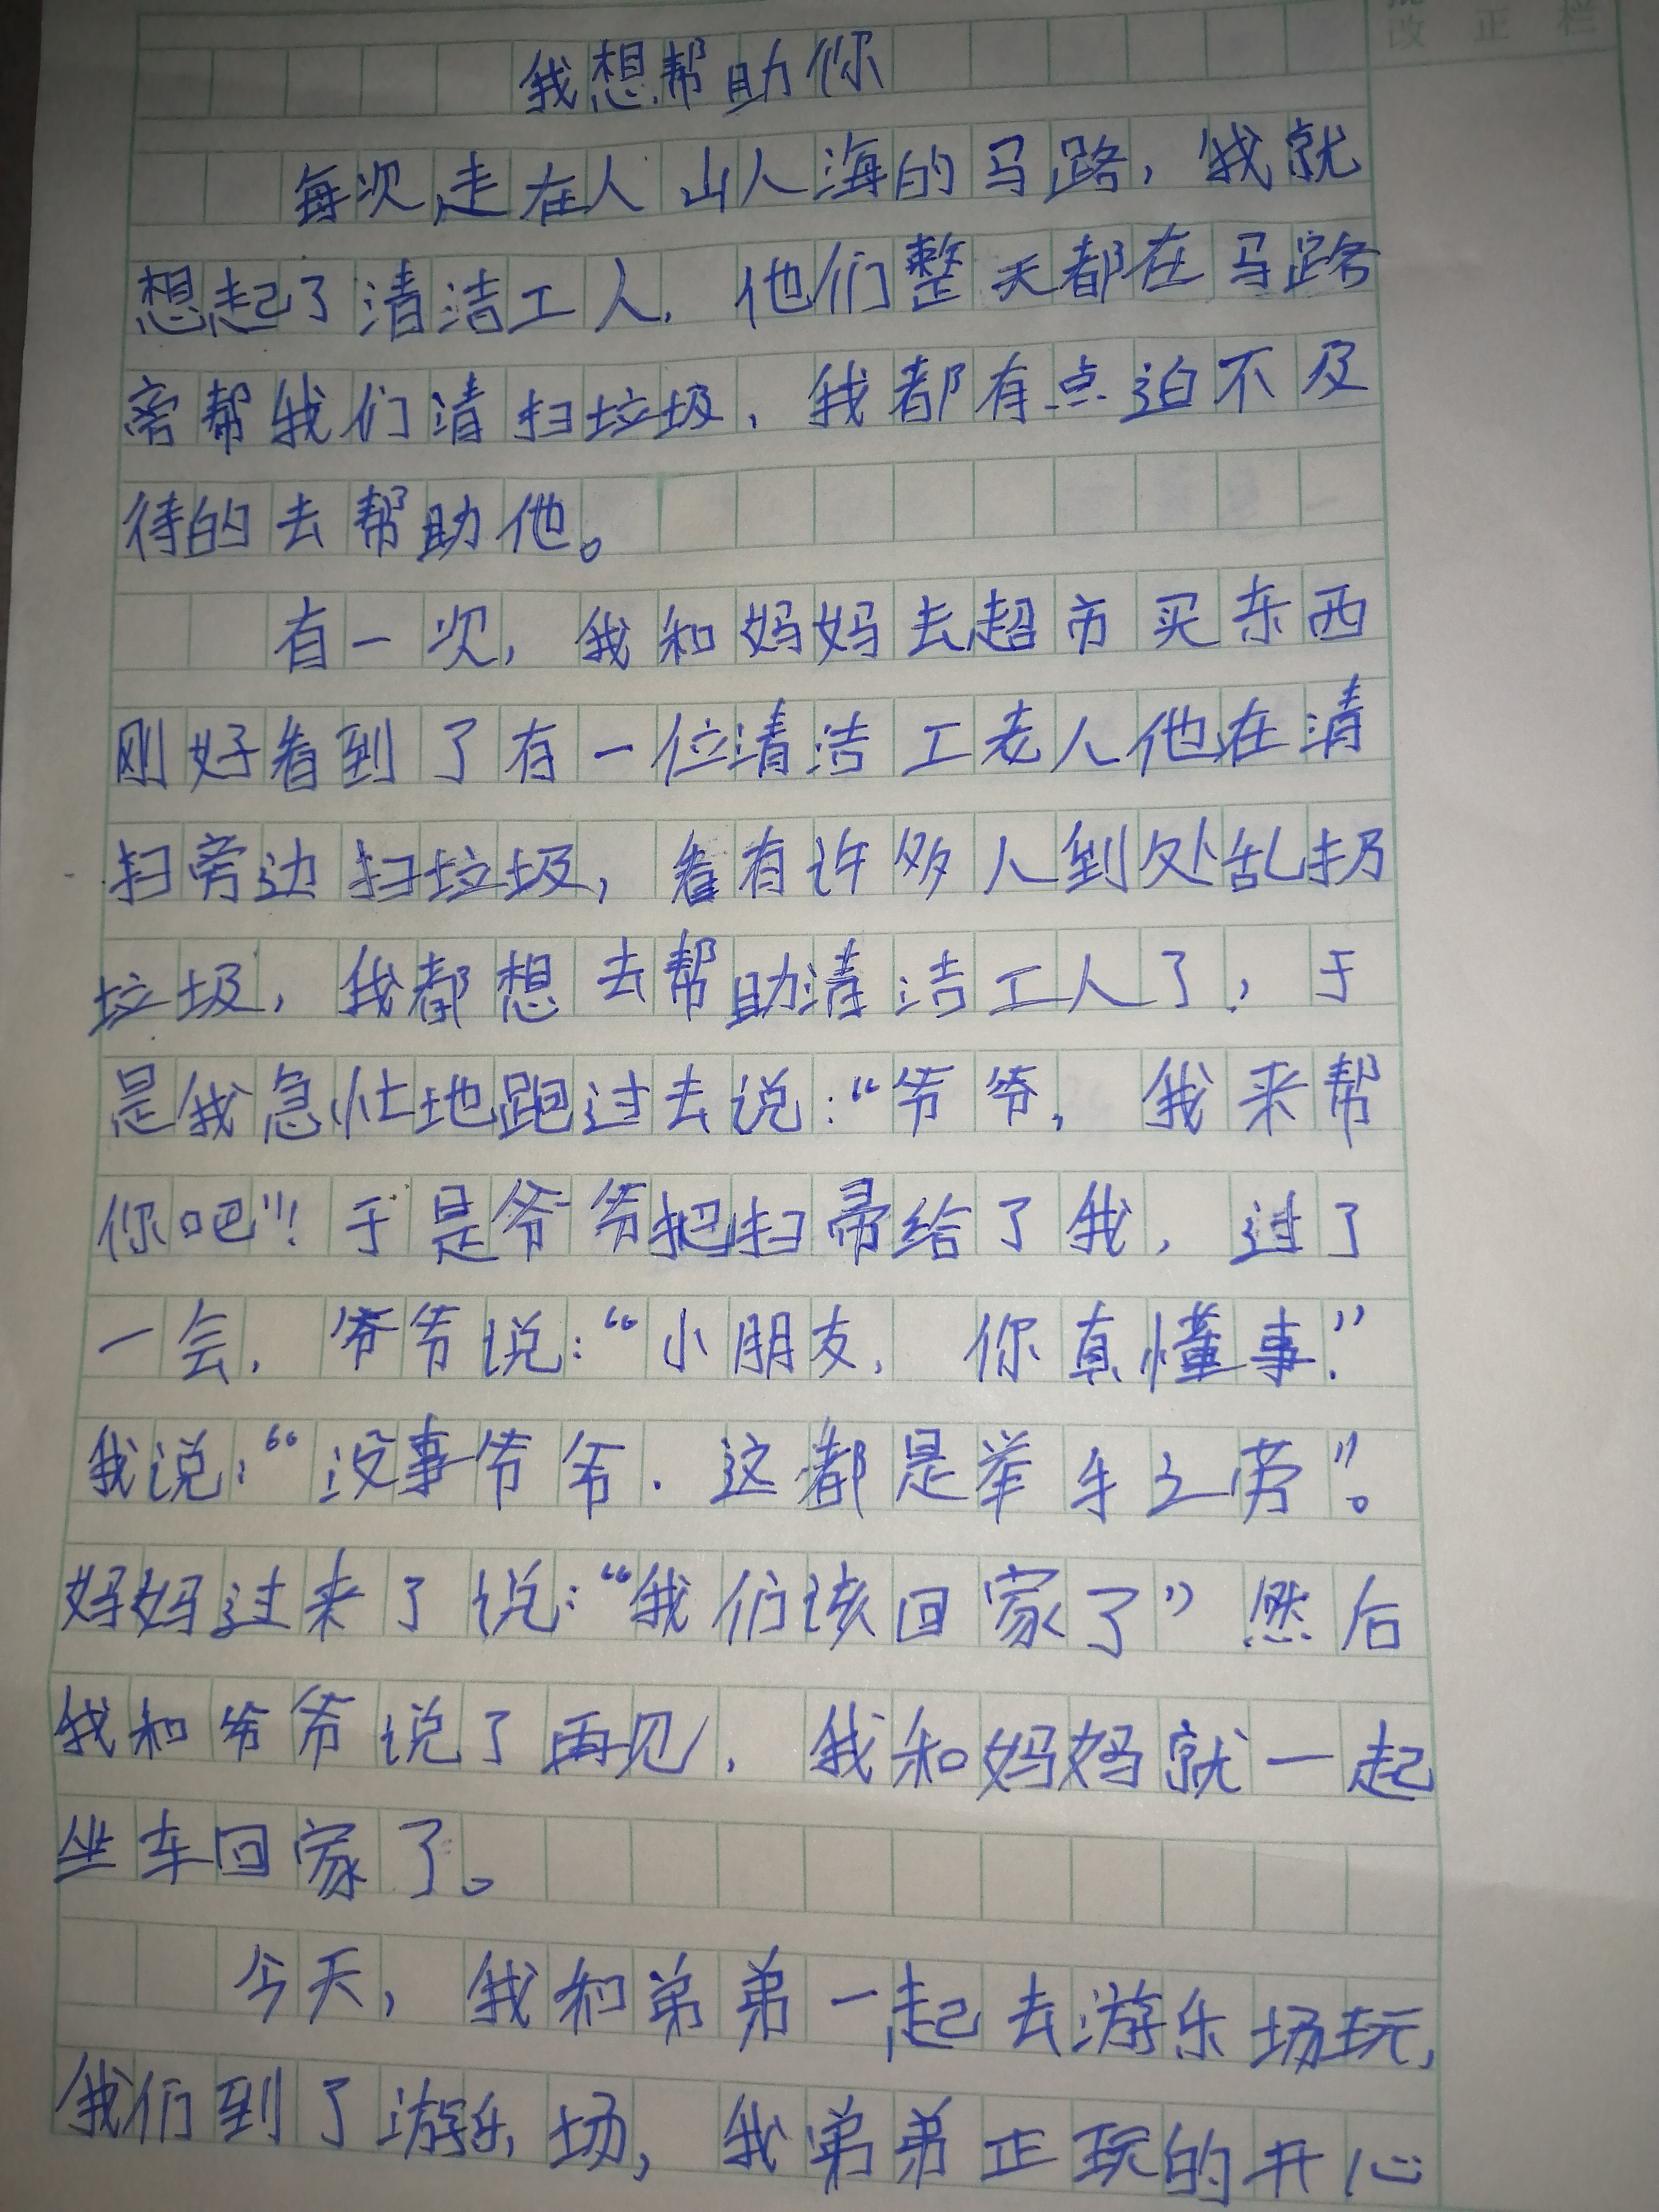 改正栏
我想帮助你
每次走在人山人海的马路，我就
想起了清洁工人，他们整天都在马路
旁帮我们清扫垃圾，我都有点迫不及
待的去帮助他。
有一次，我和妈妈去超市买东西
刚好看到了有一位清洁工老人他在清
扫旁边扫垃圾，看有许多人到处乱扔
垃圾，我都想去帮助清洁工人了，于
是我急忙地跑过去说：“爷爷，我来帮
你吧”！于是爷爷把扫帚给了我，过了
一会，爷爷说：“小朋友，你真懂事.”
我说：“没事爷爷．这都是举手之劳”。
妈妈过来了说：“我们该回家了”然后
我和爷爷说了再见，我和妈妈就一起
坐车回家了。
今天，我和弟弟一起去游乐场玩，
我们到了游乐场，我弟弟正玩的开心